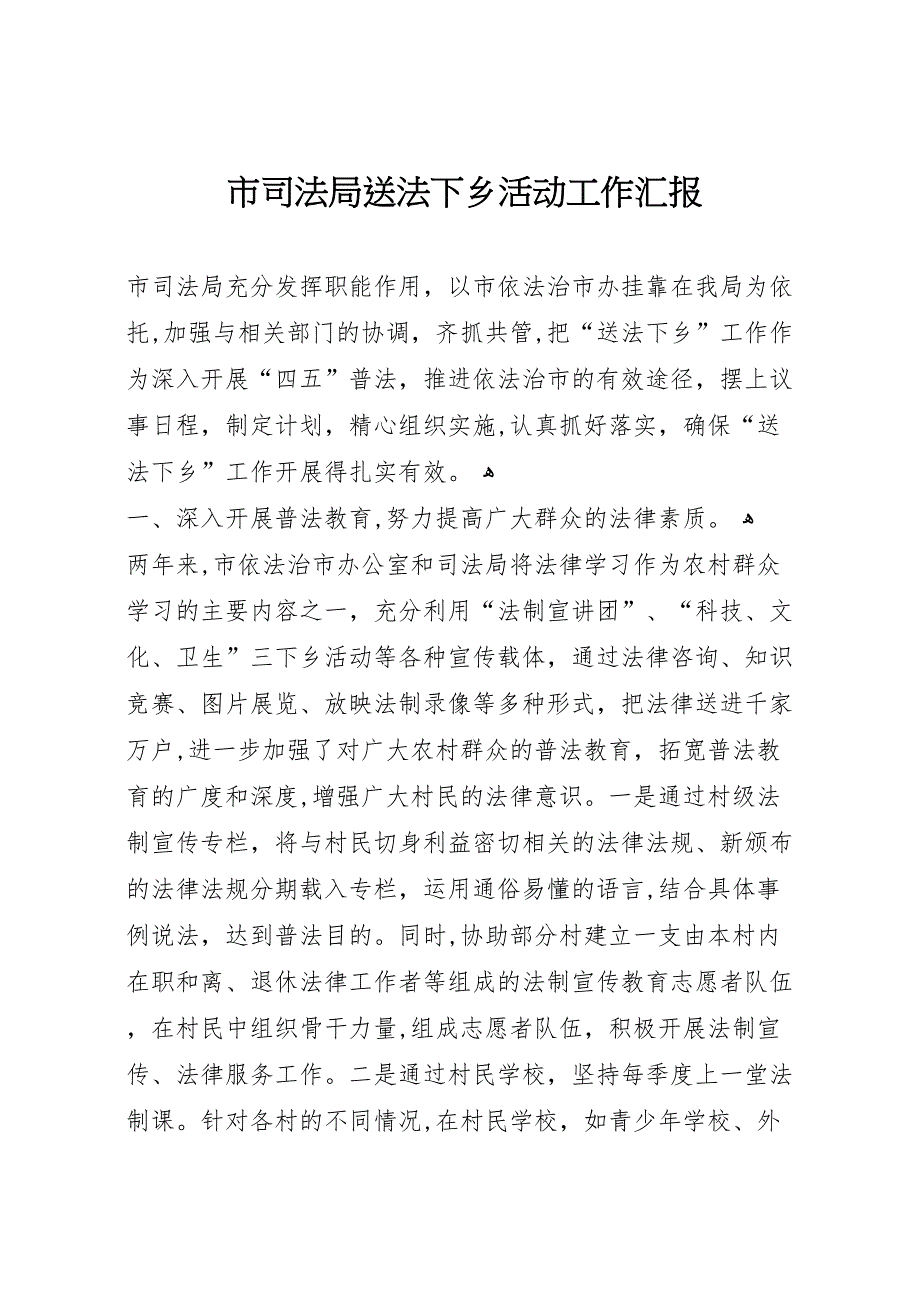 市司法局送法下乡活动工作汇报
市司法局充分发挥职能作用，以市依法治市办挂靠在我局为依
托,加强与相关部门的协调，齐抓共管,把“送法下乡”工作作
为深入开展“四五”普法，推进依法治市的有效途径，摆上议
事日程，制定计划，精心组织实施,认真抓好落实，确保“送
法下乡”工作开展得扎实有效。 ﻫ
一、深入开展普法教育,努力提高广大群众的法律素质。 ﻫ
两年来,市依法治市办公室和司法局将法律学习作为农村群众
学习的主要内容之一，充分利用“法制宣讲团”、“科技、文
化、卫生”三下乡活动等各种宣传载体，通过法律咨询、知识
竞赛、图片展览、放映法制录像等多种形式，把法律送进千家
万户,进一步加强了对广大农村群众的普法教育，拓宽普法教
育的广度和深度,增强广大村民的法律意识。一是通过村级法
制宣传专栏，将与村民切身利益密切相关的法律法规、新颁布
的法律法规分期载入专栏，运用通俗易懂的语言,结合具体事
例说法，达到普法目的。同时,协助部分村建立一支由本村内
在职和离、退休法律工作者等组成的法制宣传教育志愿者队伍
，在村民中组织骨干力量,组成志愿者队伍，积极开展法制宣
传、法律服务工作。二是通过村民学校，坚持每季度上一堂法
制课。针对各村的不同情况,在村民学校，如青少年学校、外